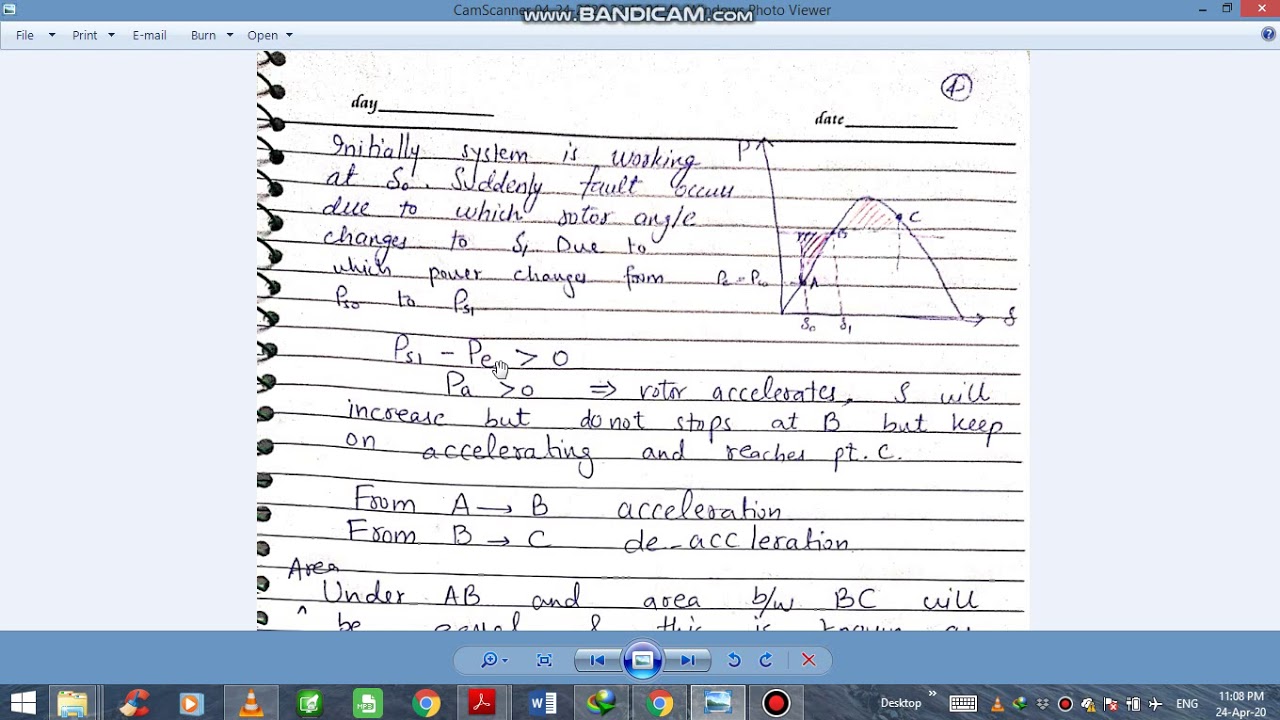 CamScanner 04-24-2020
Photo Viewer
www.BANDICAM.com
File Print E-mail Burn Open
4
day
date
Initially system is working
at S0. Suddenly fault occurs
due to which rotor angle
changes to S1. Due to
which power changes form
Ps0 to Ps1
P
C
B
A
S0 S1
S
Ps1 - Pe > 0
Pa > 0 ⇒ rotor accelerates, S will
increase but do not stops at B but keep
on accelerating and reaches pt. C.
From A → B acceleration
From B → C de-accleration
Area
Under AB and area b/w BC will
^ be equal & this is known as
Desktop
ENG
11:08 PM
24-Apr-20